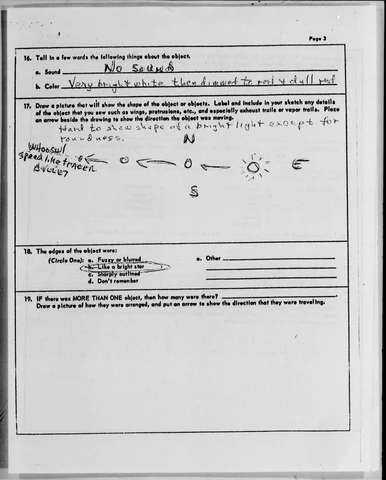 Page 3
16. Tell in a few words the following things about the object.
a. Sound No Sound
b. Color Very bright white then dimmed to red & dull red
17. Draw a picture that will show the shape of the object or objects. Label and include in your sketch any details
of the object that you saw such as wings, protrusions, etc., and especially exhaust trails or vapor trails. Place
an arrow beside the drawing to show the direction the object was moving.
Hard to show shape of a bright light except for
roundness.
N
WHOOSH!
speed like TRACER
BULLET
E
S
18. The edges of the object were:
(Circle One): a. Fuzzy or blurred
e. Other
b. Like a bright star
c. Sharply outlined
d. Don't remember
19. IF there was MORE THAN ONE object, then how many were there?
Draw a picture of how they were arranged, and put an arrow to show the direction that they were traveling.